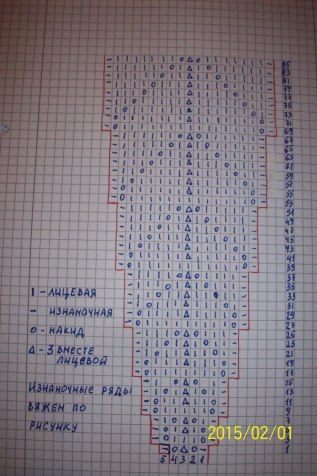 85
83
81
79
77
75
73
71
69
67
65
63
61
59
57
55
53
51
49
47
45
43
41
39
37
35
33
31
29
27
25
23
21
19
17
15
13
11
9
7
5
3
1
I - ЛИЦЕВАЯ
— - ИЗНАНОЧНАЯ
O - НАКИД
Δ - 3 ВМЕСТЕ
ЛИЦЕВОЙ
ИЗНАНОЧНЫЕ РЯДЫ
ВЯЖЕМ ПО
РИСУНКУ
2015/02/01
5 4 3 2 1